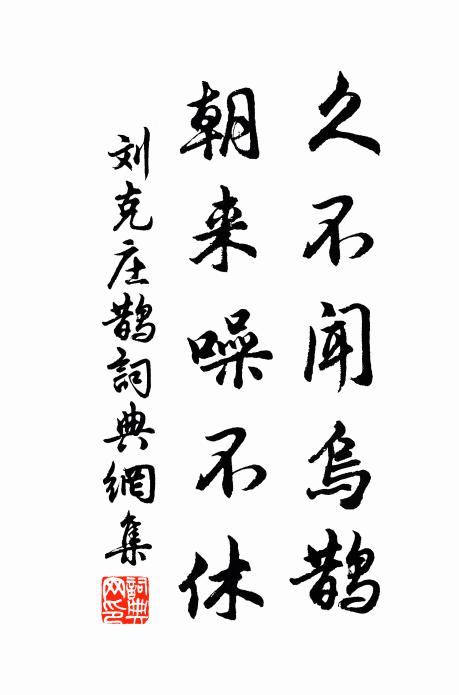 久不闻乌鹊
朝来噪不休
刘克庄鹊詞典網集
詞典网印